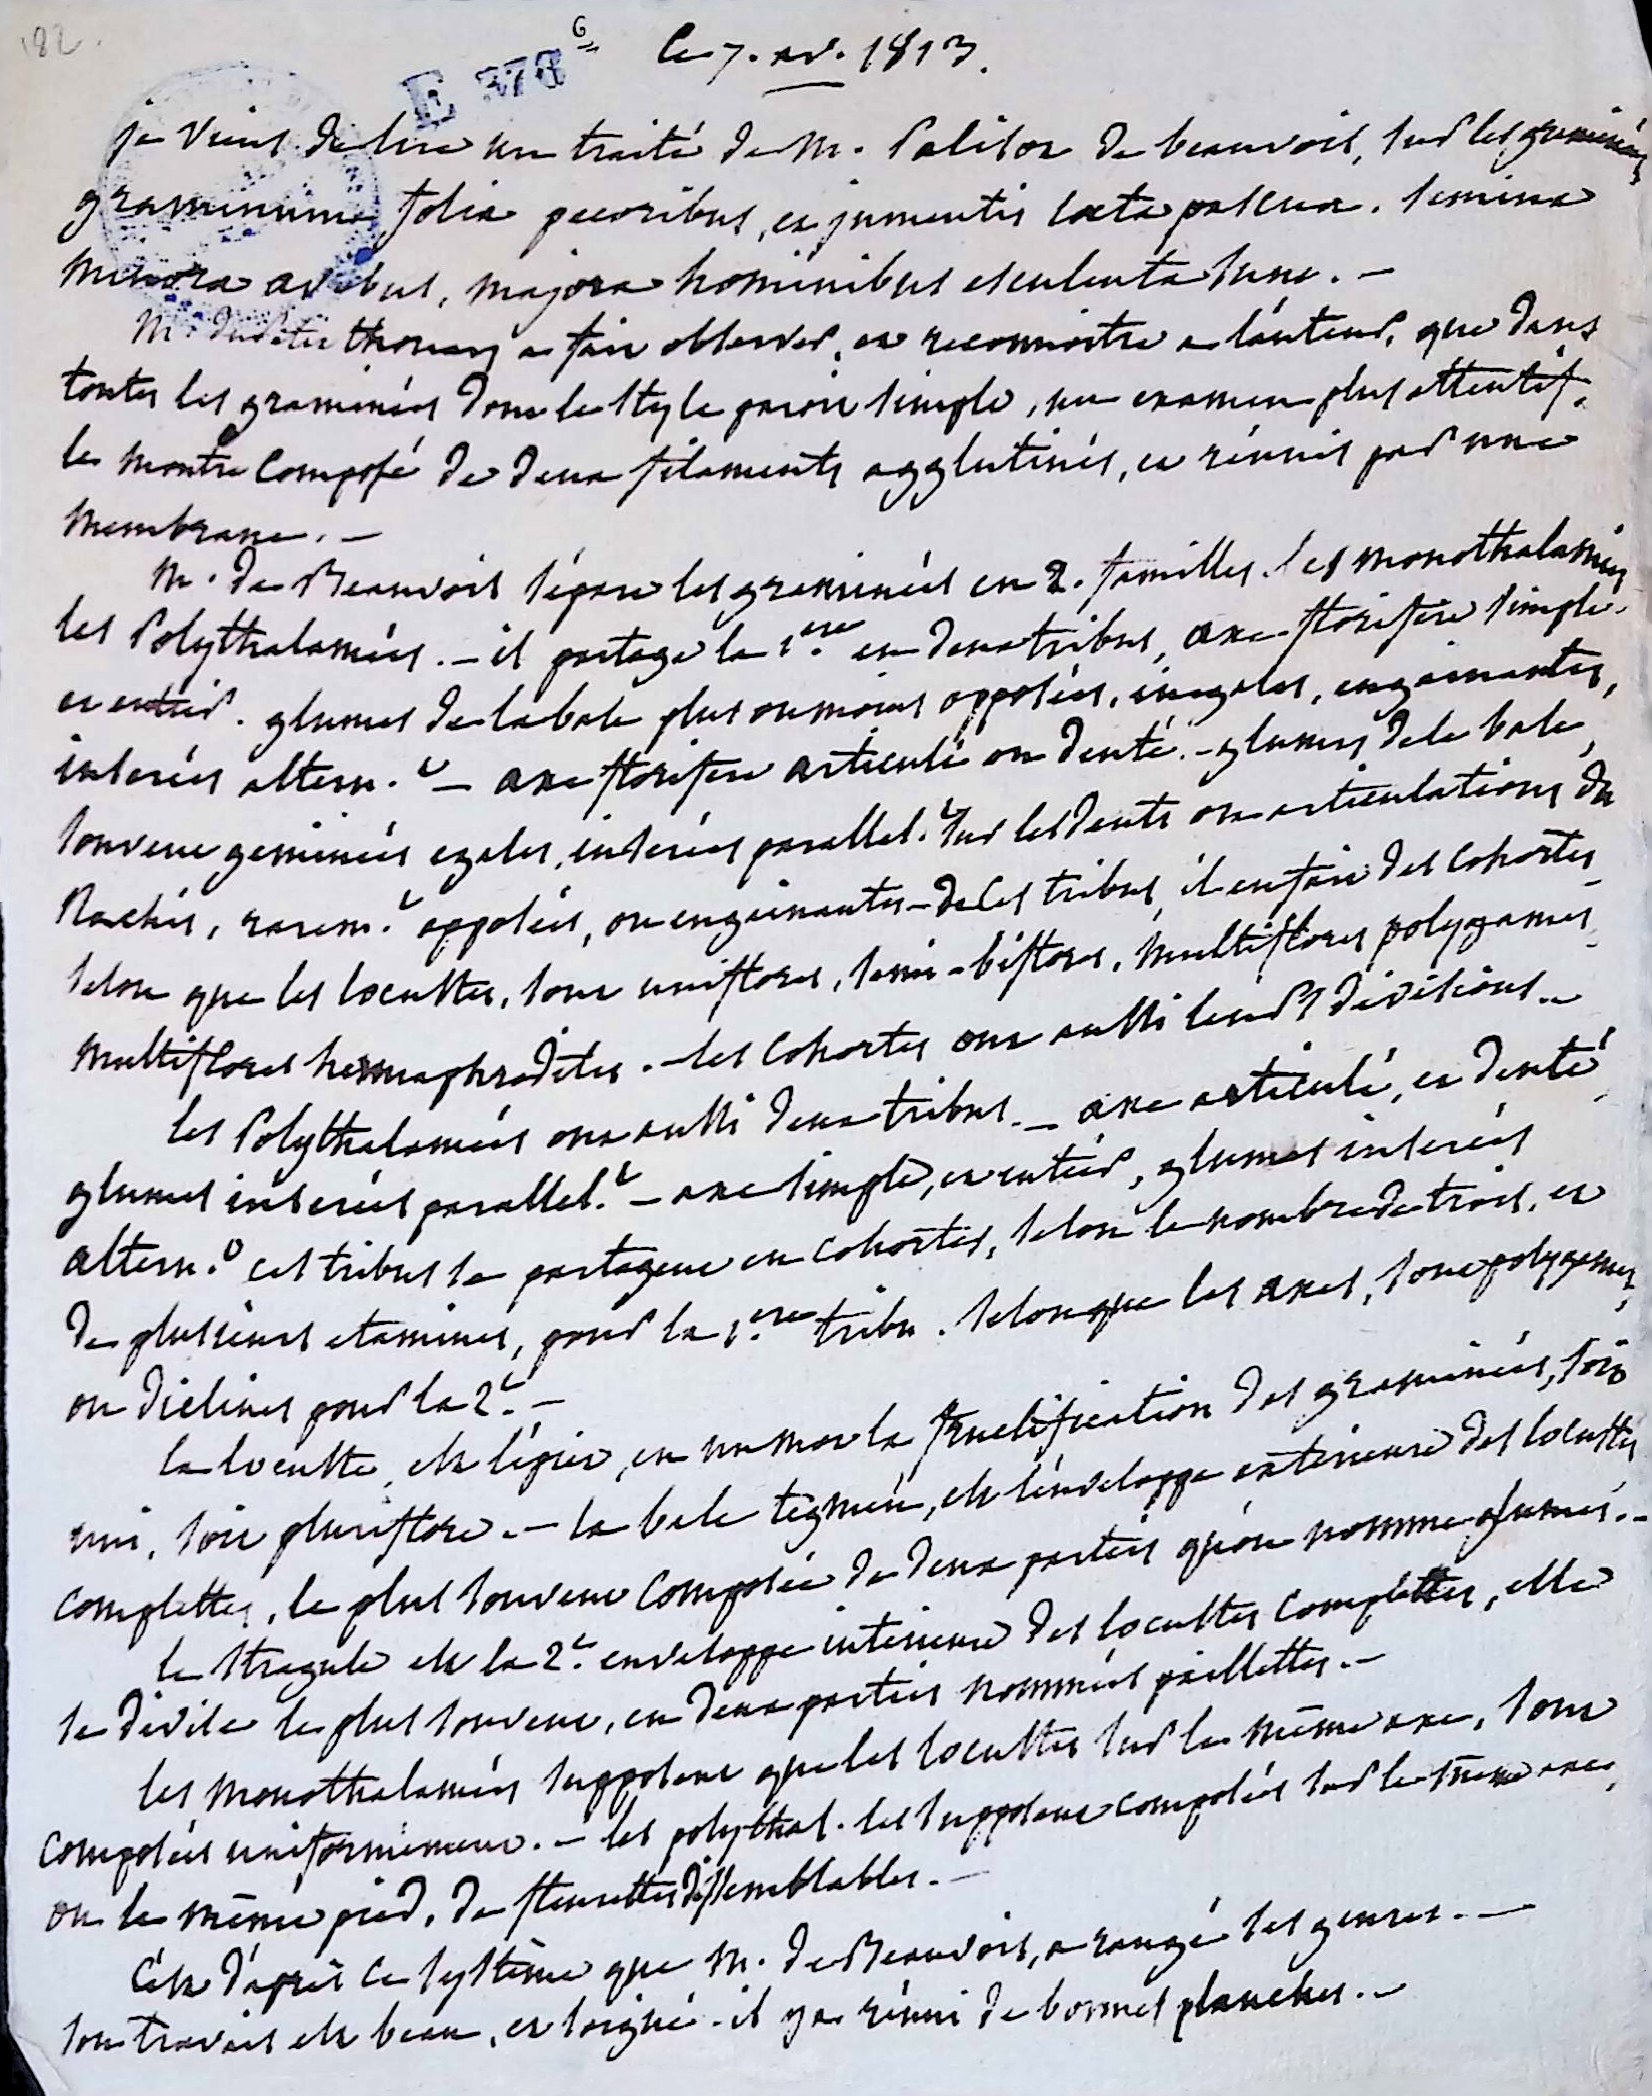 182.
E 378
6
le 7. av. 1813.
je viens de lire un traité de M. Palisot de beauvois, sur les graminées
graminum folia pecoribus, et jumentis laeta pascua. semina
minora avibus, majora hominibus esculenta sunt. -
M. du Petit thouars a fait observer, et reconnoitre a l'auteur, que dans
toutes les graminées dont le style paroit simple, un examen plus attentif,
le montre composé de deux filaments agglutinés, et réunis par une
membrane. -
M. de Beauvois sépare les graminées en 2. familles. les monothalamées
les Polythalamées. - il partage la 1.ere en deux tribus, axe florifere simple
et entier. glumes de la bale plus ou moins opposées, inégales, engainantes,
inserées altern.t - axe florifere articulé ou denté. - glumes de la bale,
souvent geminées egales, inserées parallel.t sur les dents ou articulations du
Rachis, rarem.t opposées, ou engainantes - de ces tribus, il en fait des cohortes
selon que les locustes, sont uniflores, semi-biflores, multiflores polygames,
multiflores hermaphrodites. - les cohortes ont aussi leurs divisions. -
les Polythalamées ont aussi deux tribus. - axe articulé, et denté,
glumes inserées parallel.t - axe simple, et entier, glumes inserées
altern.t ces tribus se partagent en cohortes, selon le nombre de trois, et
de plusieurs etamines, pour la 1.ere tribu. selon que les axes, sont polygames,
ou diclines pour la 2.e -
la locuste, est l'épi, en un mot la fructification des graminées, soit
uni, soit pluriflore. - la bale tegmen, est l'enveloppe exterieure des locustes
complettes, le plus souvent composée de deux parties qu'on nomme glumes. -
le stragule est la 2.e enveloppe interieure des locustes complettes, elle
se divise le plus souvent, en deux parties nommées paillettes. -
les monothalamées supposent que les locustes sur le même axe, sont
composées uniformément. - les polythal. les supposent composées sur le même axe,
ou le même pied, de fleurettes dissemblables. -
C'est d'après ce système que M. de Beauvois, a rangé les genres. -
son travail est beau, et soigné. il y a réuni de bonnes planches. -